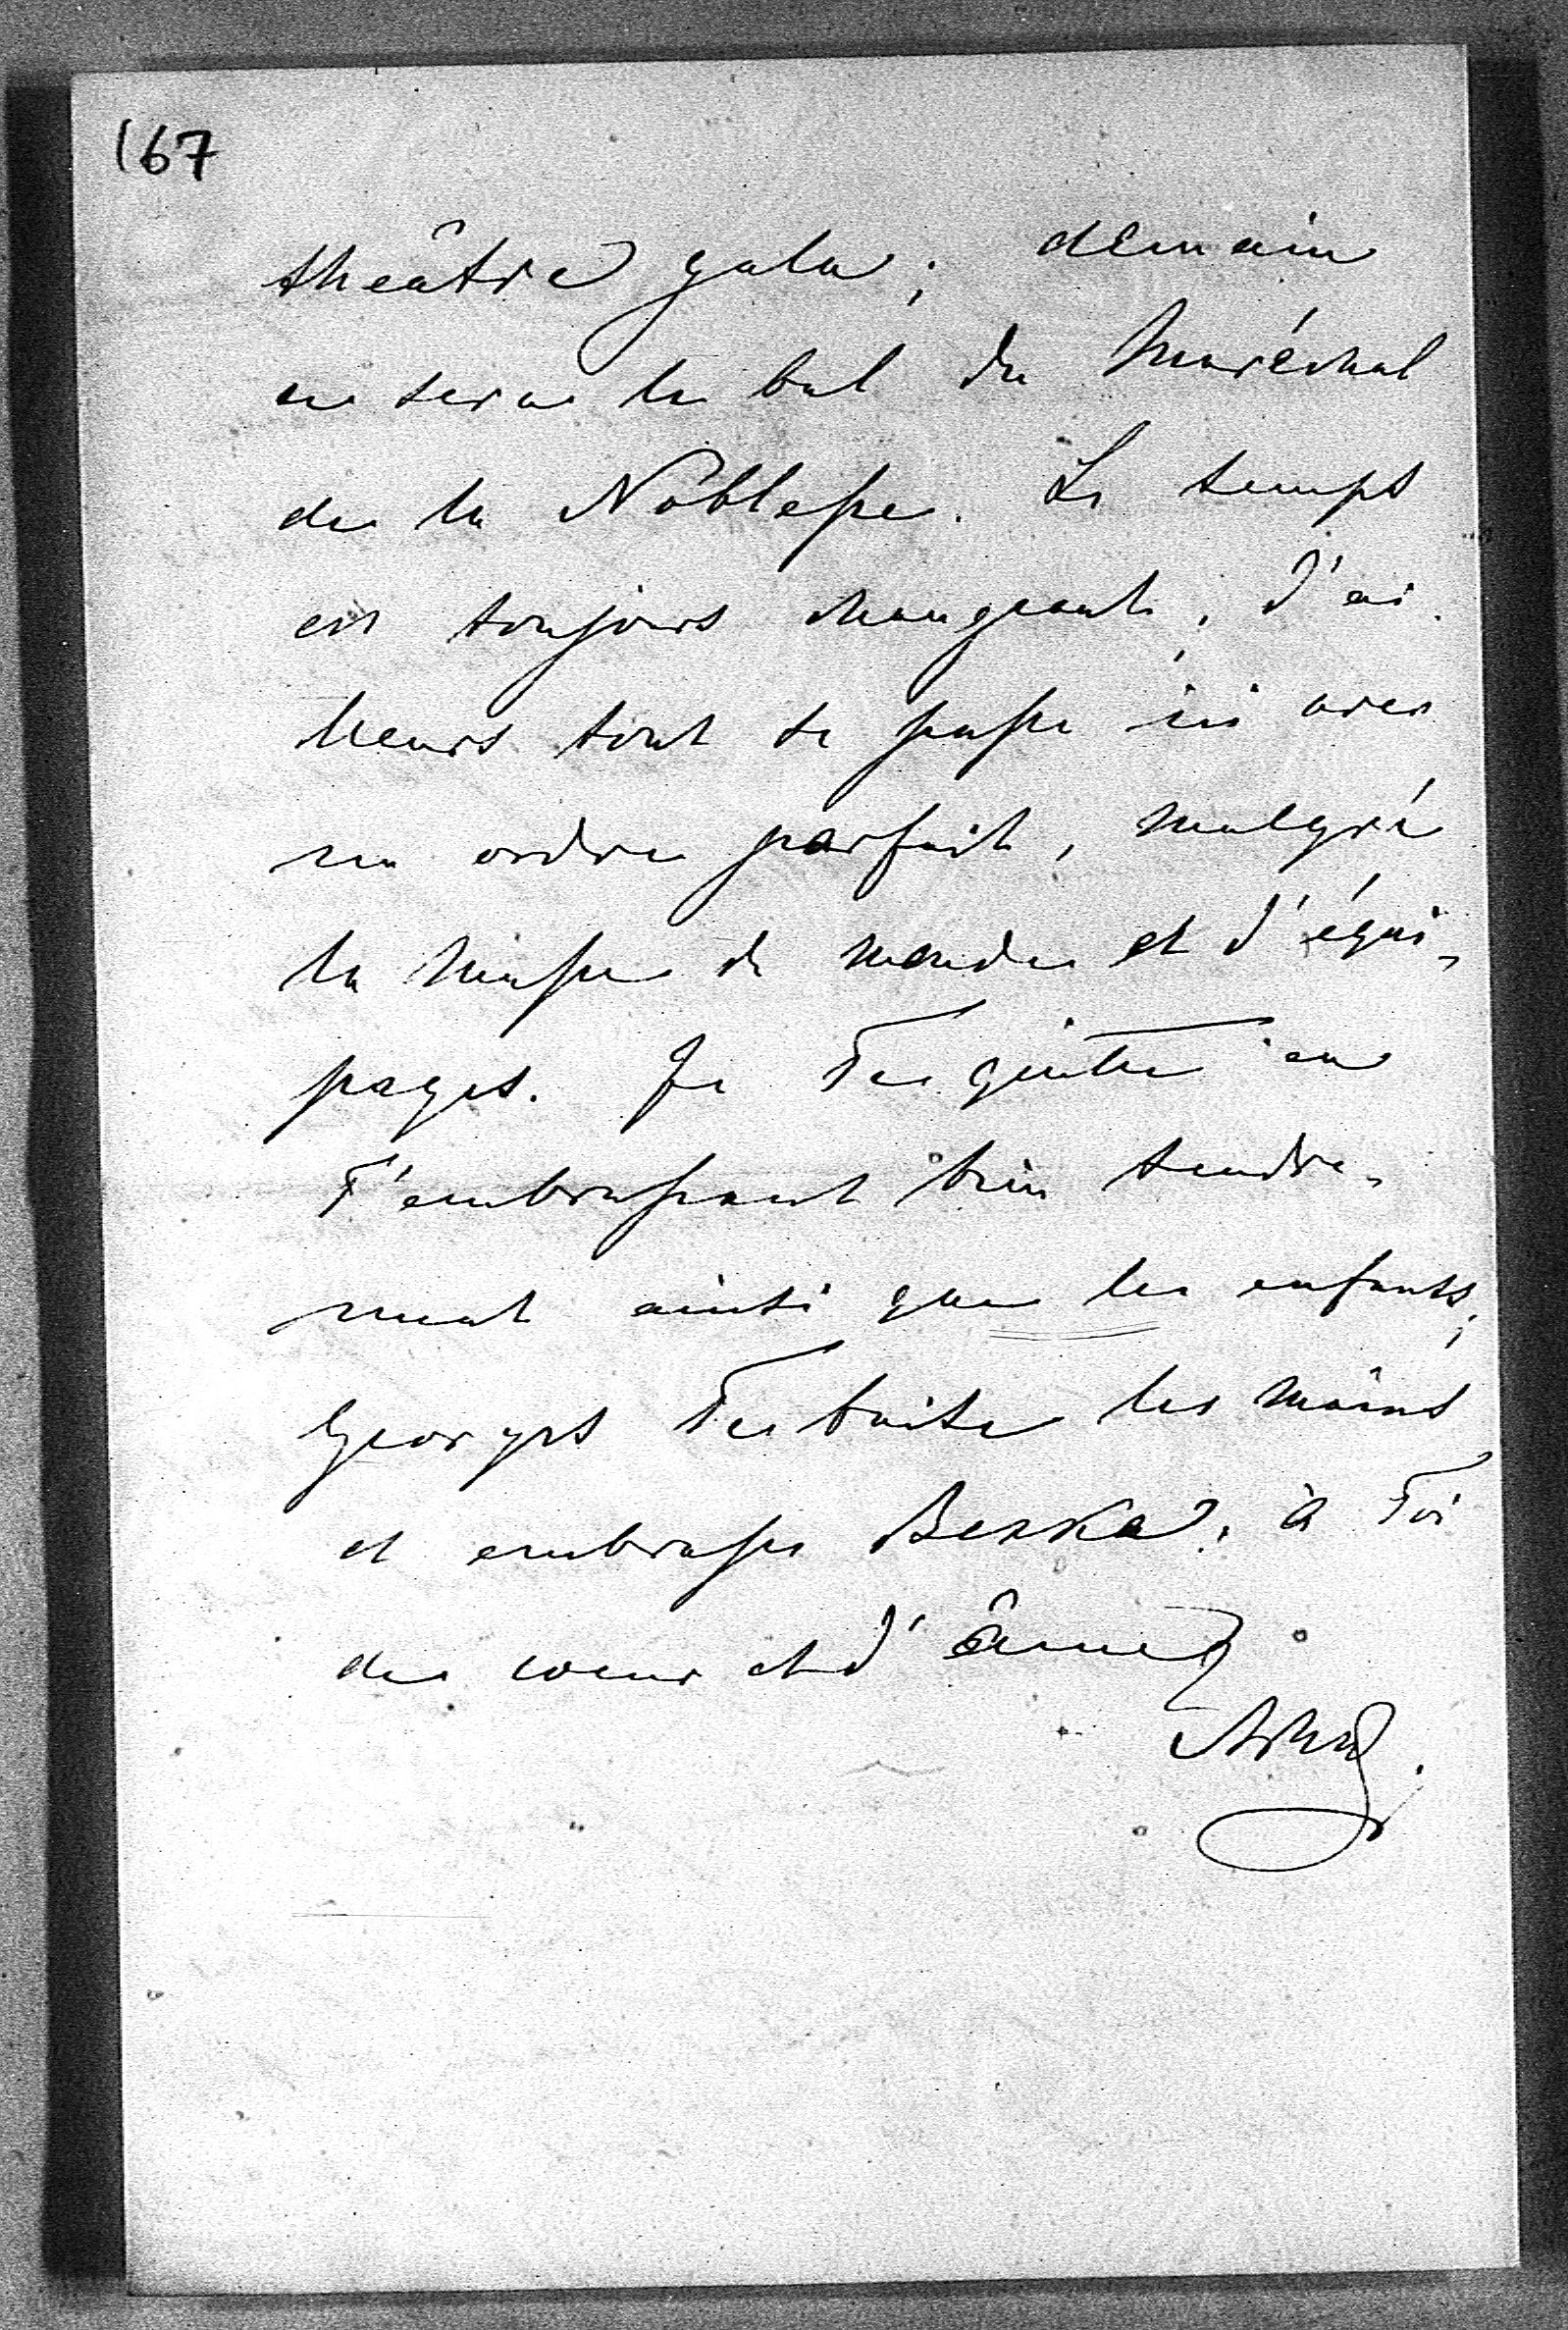 167
théâtre gala; demain
ce sera le bal du Maréchal
de la Noblesse. Le temps
est toujours changeant, d'ail
leurs tout se passe ici avec
un ordre parfait, malgré
la masse de monde et d'équi-
pages. Je Te quitte en
T'embrassant bien tendre-
ment ainsi que les enfants;
Georges Te baise les mains
et embrasse Bekka. à Toi
de coeur et d'âme